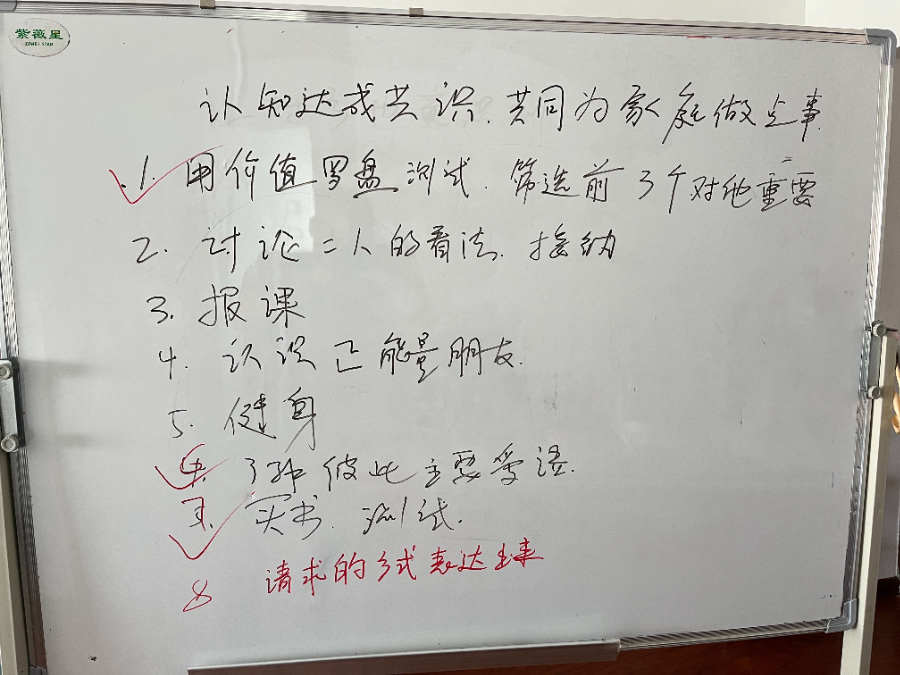 紫薇星
ZIWEI STAR
认知达成共识.共同为家庭做点事
1. 用价值罗盘测试.筛选前3个对他重要
2. 讨论二人的看法.接纳
3. 报课
4. 认识正能量朋友.
5. 健身
了解彼此主要爱语.
买书.测试.
8 请求的方式表达出来